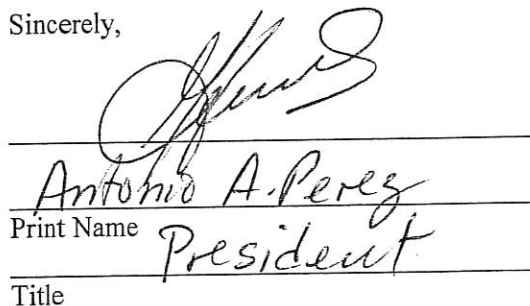 Sincerely,
Antonio A. Perez
Print Name
President
Title